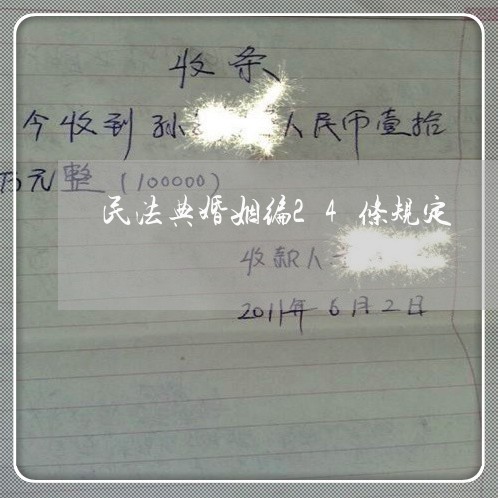 收条
今收到孙 人民币壹拾
万元整(100000)
民法典婚姻编24条规定
收款人
2011年6月2日